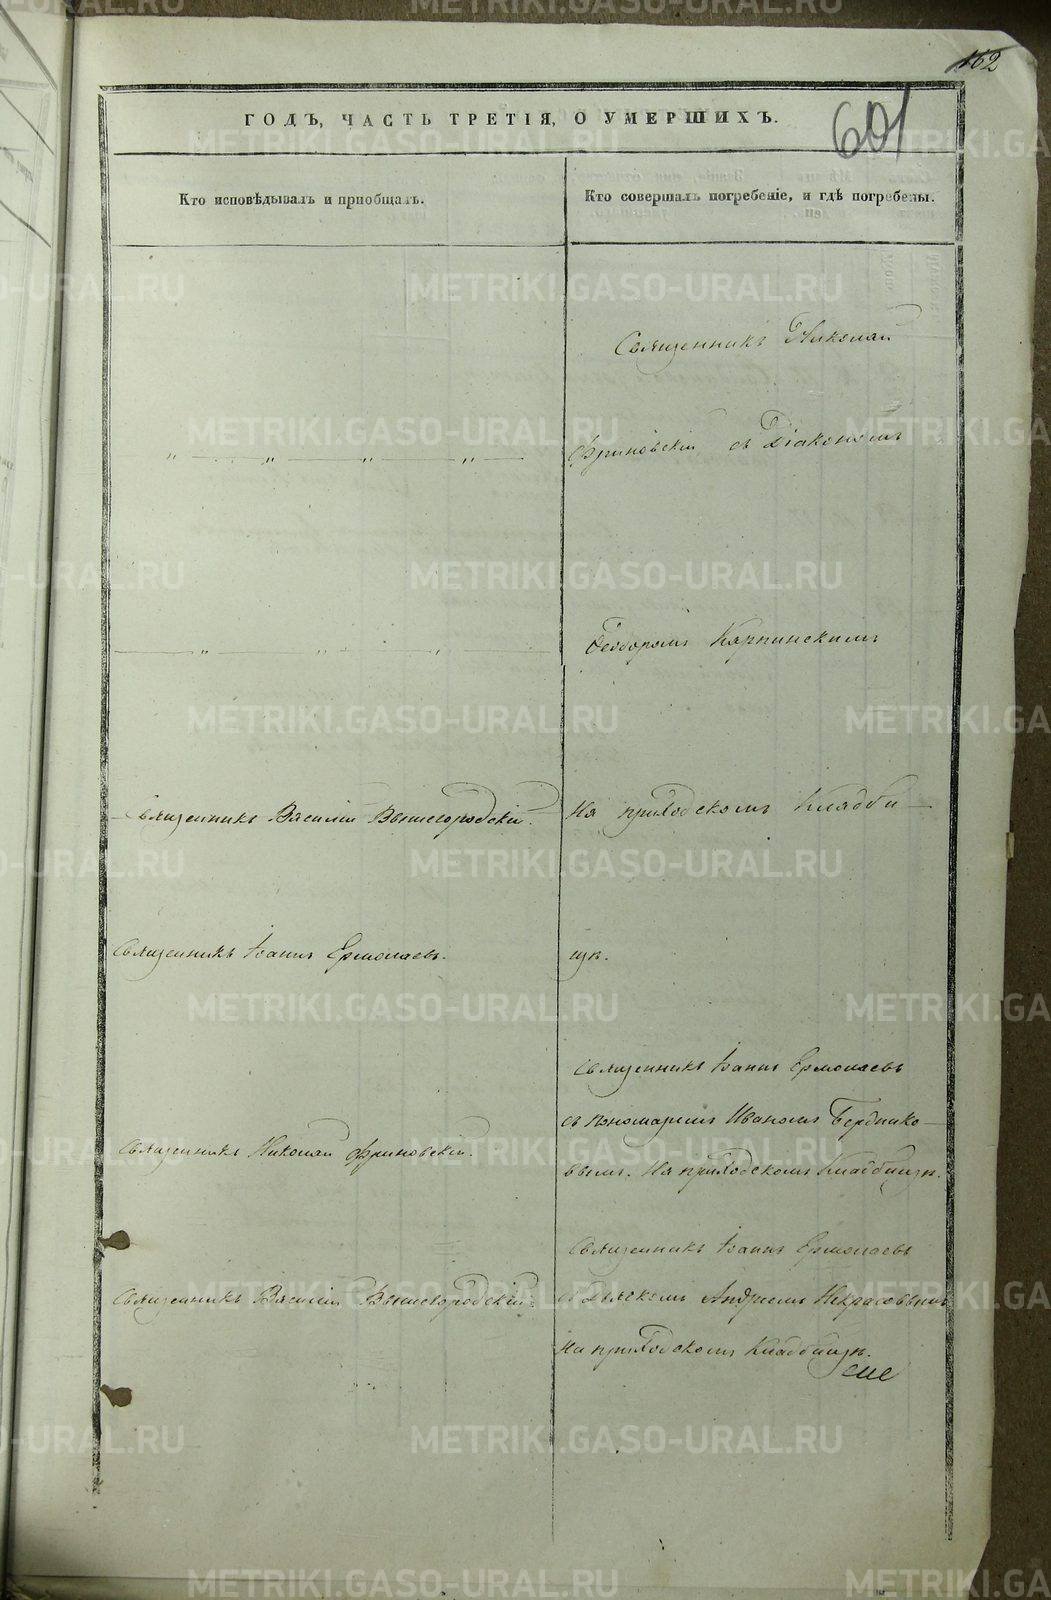 162
601
ГОДЪ, ЧАСТЬ ТРЕТІЯ, О УМЕРШИХЪ.
Кто исповѣдывалъ и пріобщалъ.
Кто совершалъ погребеніе, и гдѣ погребены.
Священникъ Николай
Фриновскій съ Діакономъ
Ѳеодоромъ Карпинскимъ
Священникъ Василій Вышегородскій.
На приходскомъ Кладби-
Священникъ Іоаннъ Ермолаевъ.
щѣ.
Священникъ Іоаннъ Ермолаевъ
съ пономаремъ Иваномъ Бердико-
Священникъ Николай Фриновскій.
вымъ. На приходскомъ Кладбищѣ.
Священникъ Іоаннъ Ермолаевъ
Священникъ Василій Вышегородскій.
съ Дьяскомъ Андреемъ Некрасовымъ
На приходскомъ Кладбищѣ.
METRIKI.GASO-URAL.RU